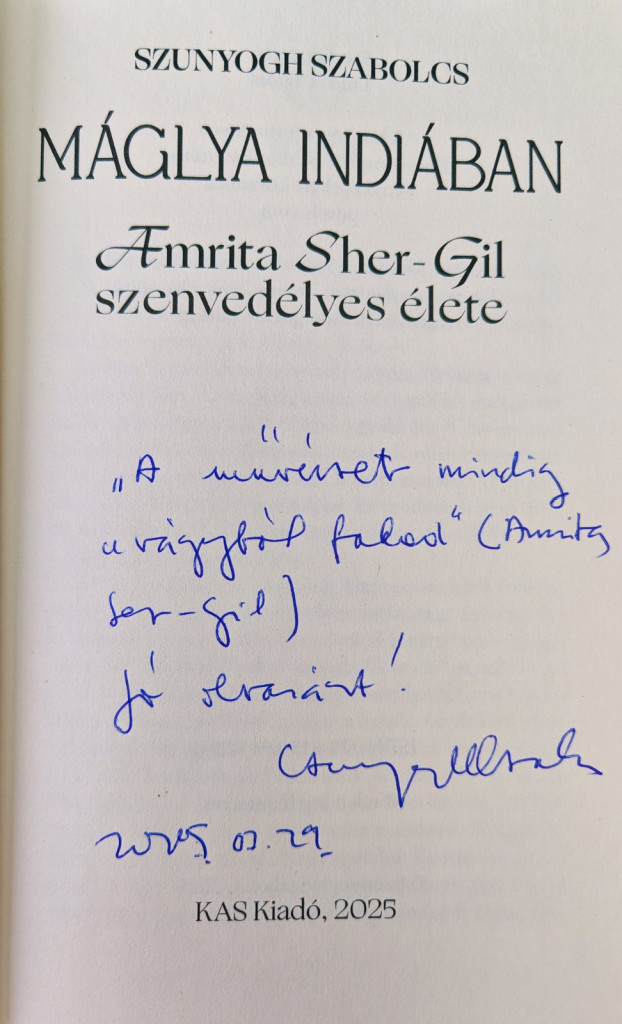 SZUNYOGH SZABOLCS
MÁGLYA INDIÁBAN
Amrita Sher-Gil
szenvedélyes élete
„A művészet mindig
a vágyból fakad" (Amrita
Ser-Gil)
Jó olvasást!
2025. 03. 29.
KAS Kiadó, 2025